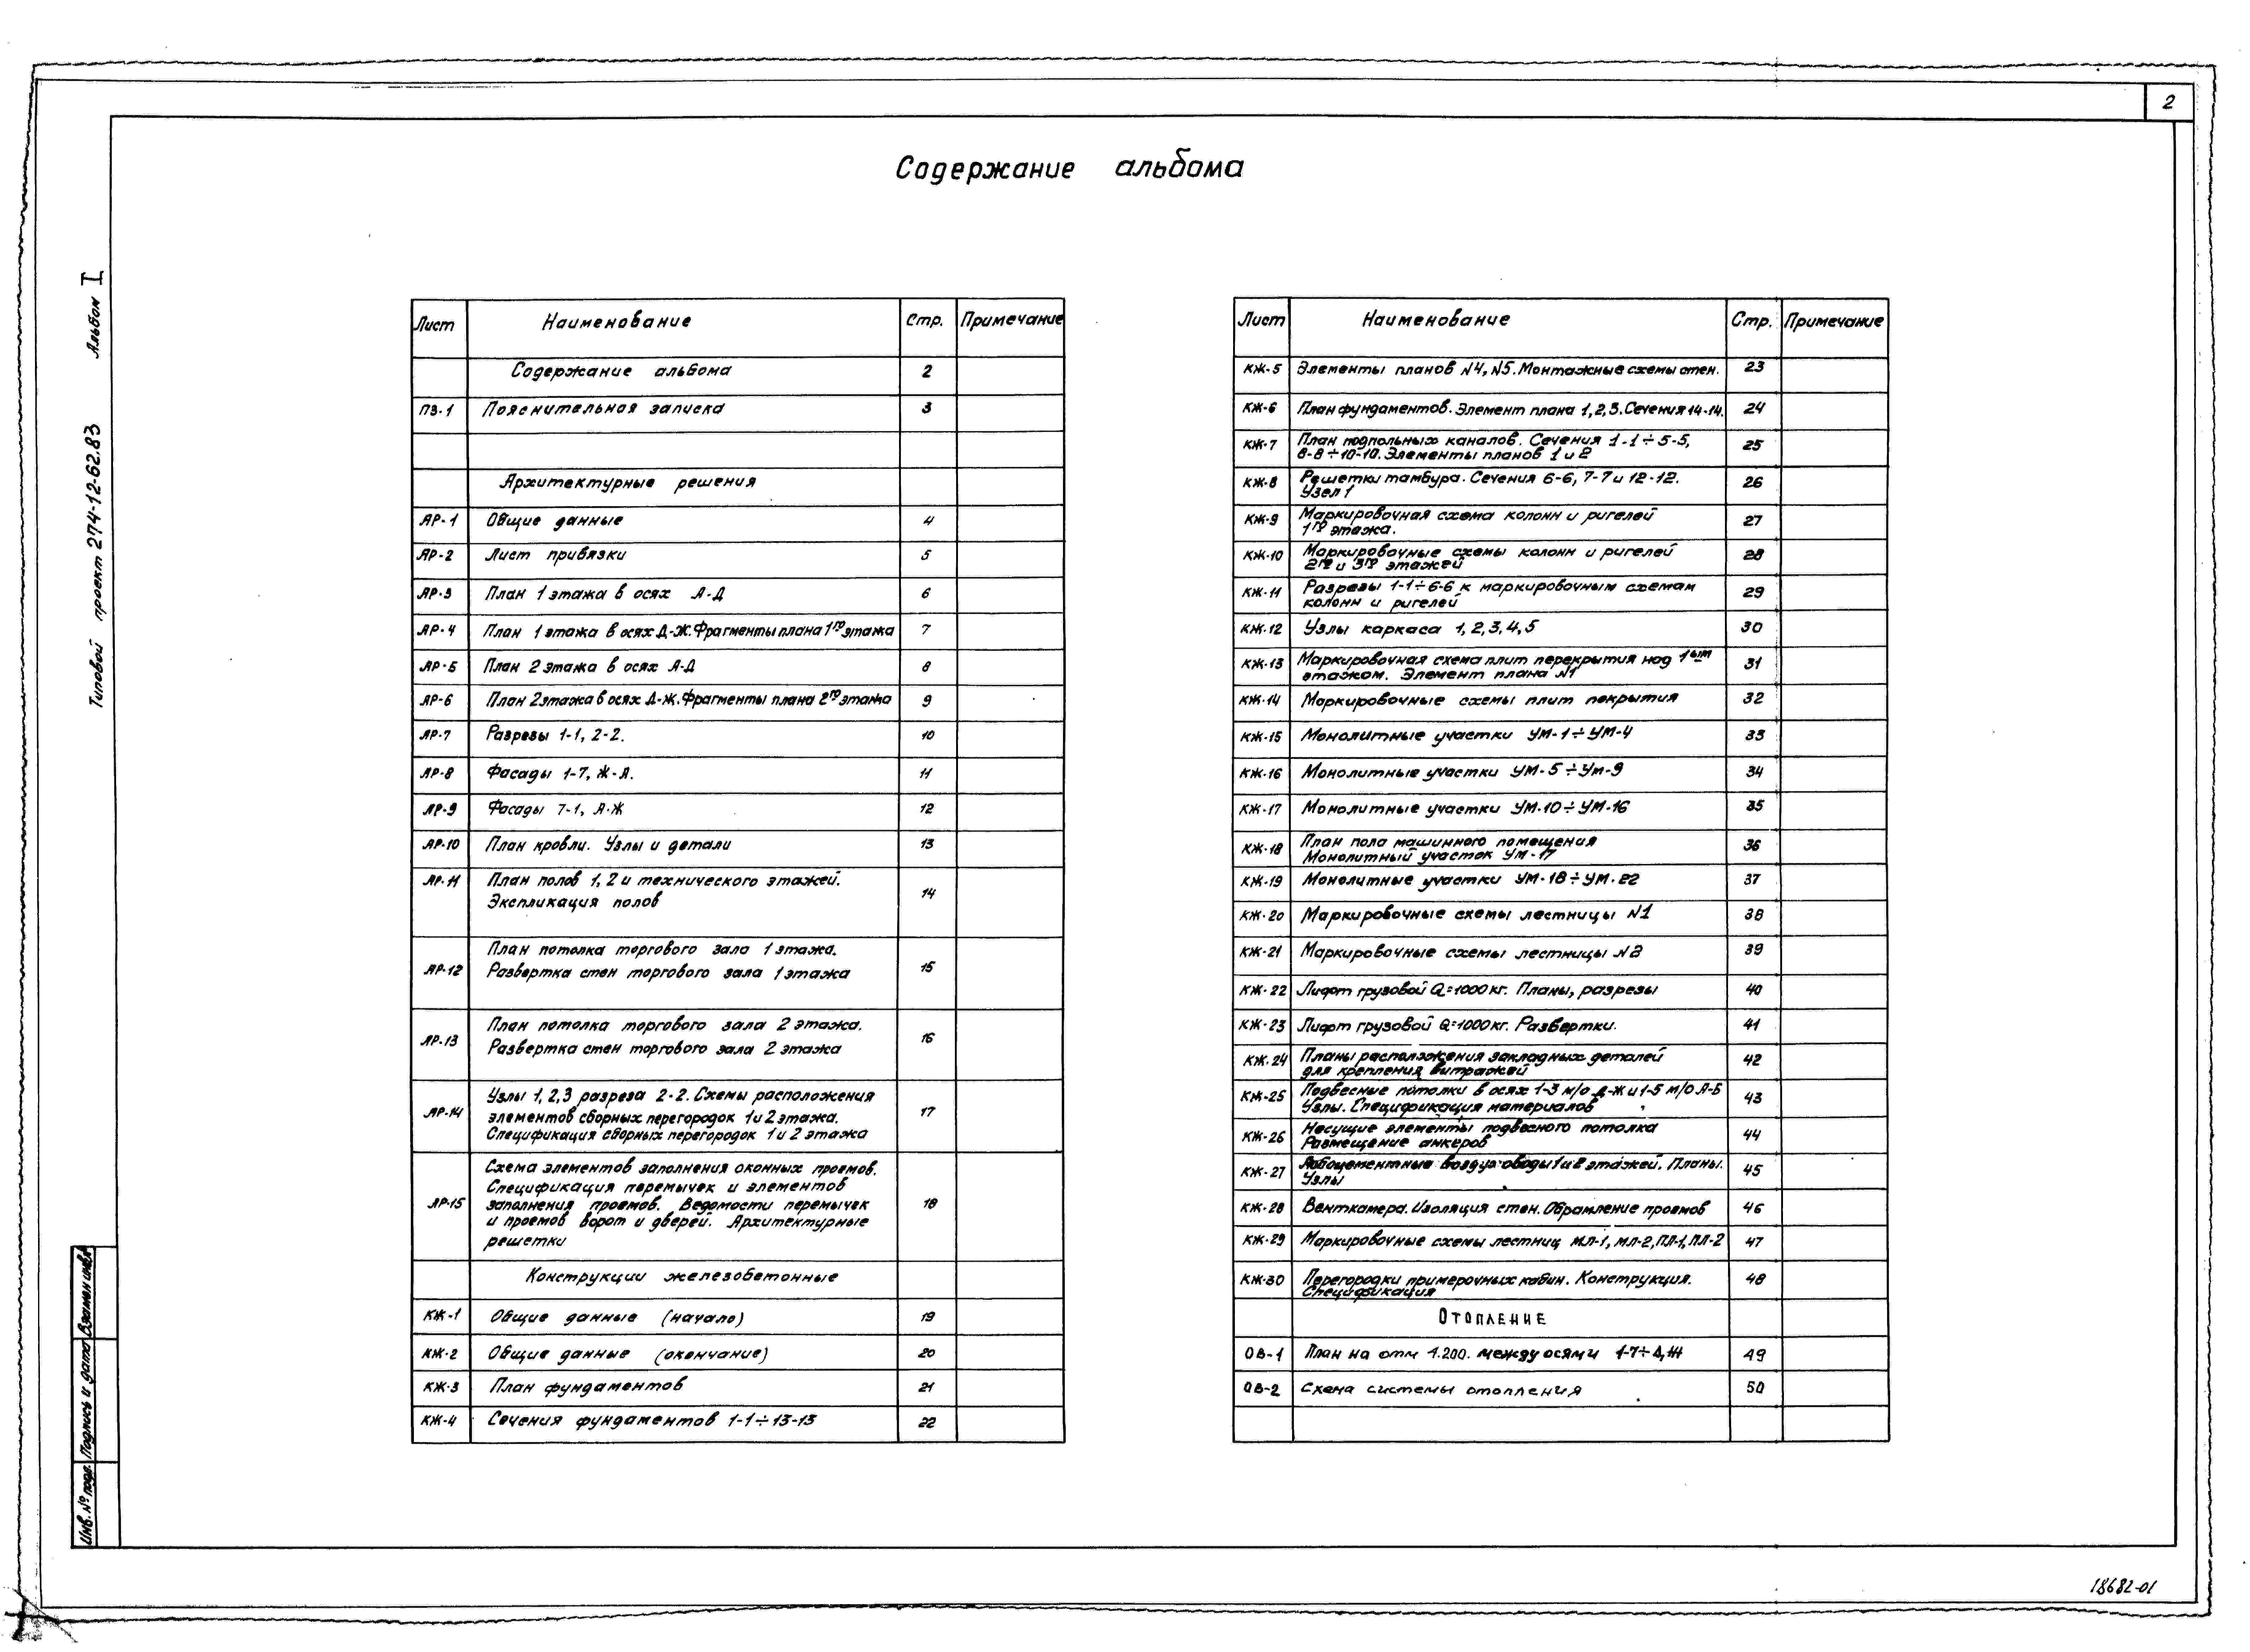 2
Содержание альбома
Типовой проект 274-12-62.83 Альбом I
Лист Наименование Стр. Примечание
Содержание альбома 2
ПЗ-1 Пояснительная записка 3
Архитектурные решения
АР-1 Общие данные 4
АР-2 Лист привязки 5
АР-3 План 1 этажа в осях А-Д 6
АР-4 План 1 этажа в осях Д-Ж. Фрагменты плана 1го этажа 7
АР-5 План 2 этажа в осях А-Д 8
АР-6 План 2 этажа в осях Д-Ж. Фрагменты плана 2го этажа 9
АР-7 Разрезы 1-1, 2-2. 10
АР-8 Фасады 1-7, Ж-А. 11
АР-9 Фасады 7-1, А-Ж 12
АР-10 План кровли. Узлы и детали 13
АР-11 План полов 1, 2 и технического этажей.
Экспликация полов 14
План потолка торгового зала 1 этажа.
АР-12 Развертка стен торгового зала 1 этажа 15
План потолка торгового зала 2 этажа.
АР-13 Развертка стен торгового зала 2 этажа 16
Узлы 1, 2, 3 разреза 2-2. Схемы расположения
АР-14 элементов сборных перегородок 1 и 2 этажа. 17
Спецификация сборных перегородок 1 и 2 этажа
Схема элементов заполнения оконных проемов.
Спецификация перемычек и элементов
АР-15 заполнения проемов. Ведомости перемычек 18
и проемов ворот и дверей. Архитектурные
решетки
Конструкции железобетонные
КЖ-1 Общие данные (начало) 19
КЖ-2 Общие данные (окончание) 20
КЖ-3 План фундаментов 21
КЖ-4 Сечения фундаментов 1-1÷13-13 22
Лист Наименование Стр. Примечание
КЖ-5 Элементы планов N4, N5. Монтажные схемы стен. 23
КЖ-6 План фундаментов. Элемент плана 1, 2, 3. Сечения 14-14. 24
КЖ-7 План подпольных каналов. Сечения 1-1÷5-5, 25
8-8÷10-10. Элементы планов 1 и 2
КЖ-8 Решетки тамбура. Сечения 6-6, 7-7 и 12-12. 26
Узел 1
КЖ-9 Маркировочная схема колонн и ригелей 27
1го этажа.
КЖ-10 Маркировочные схемы колонн и ригелей 28
2го и 3го этажей
КЖ-11 Разрезы 1-1÷6-6 к маркировочным схемам 29
колонн и ригелей
КЖ-12 Узлы каркаса 1, 2, 3, 4, 5 30
КЖ-13 Маркировочная схема плит перекрытия над 1ым 31
этажом. Элемент плана N1
КЖ-14 Маркировочные схемы плит покрытия 32
КЖ-15 Монолитные участки УМ-1÷УМ-4 33
КЖ-16 Монолитные участки УМ-5÷Ум-9 34
КЖ-17 Монолитные участки УМ-10÷УМ-16 35
КЖ-18 План пола машинного помещения 36
Монолитный участок УМ-17
КЖ-19 Монолитные участки УМ-18÷УМ-22 37
КЖ-20 Маркировочные схемы лестницы N1 38
КЖ-21 Маркировочные схемы лестницы N2 39
КЖ-22 Лифт грузовой Q=1000кг. Планы, разрезы 40
КЖ-23 Лифт грузовой Q=1000кг. Развертки. 41
КЖ-24 Планы расположения закладных деталей 42
для крепления витражей
КЖ-25 Подвесные потолки в осях 1-3 м/о Д-Ж и 1-5 м/о А-Б 43
Узлы. Спецификация материалов
КЖ-26 Несущие элементы подвесного потолка 44
Размещение анкеров
КЖ-27 Асбоцементные воздуховоды 1 и 2 этажей. Планы. 45
Узлы
КЖ-28 Венткамера. Изоляция стен. Обрамление проемов 46
КЖ-29 Маркировочные схемы лестниц МЛ-1, МЛ-2, ПЛ-1, ПЛ-2 47
КЖ-30 Перегородки примерочных кабин. Конструкция. 48
Спецификация
ОТОПЛЕНИЕ
ОВ-1 План на отм 1.200. между осями 1-7÷Д,Ж 49
ОВ-2 Схема системы отопления 50
Инв. № подл. Подпись и дата Взамен инв.№
18682-01